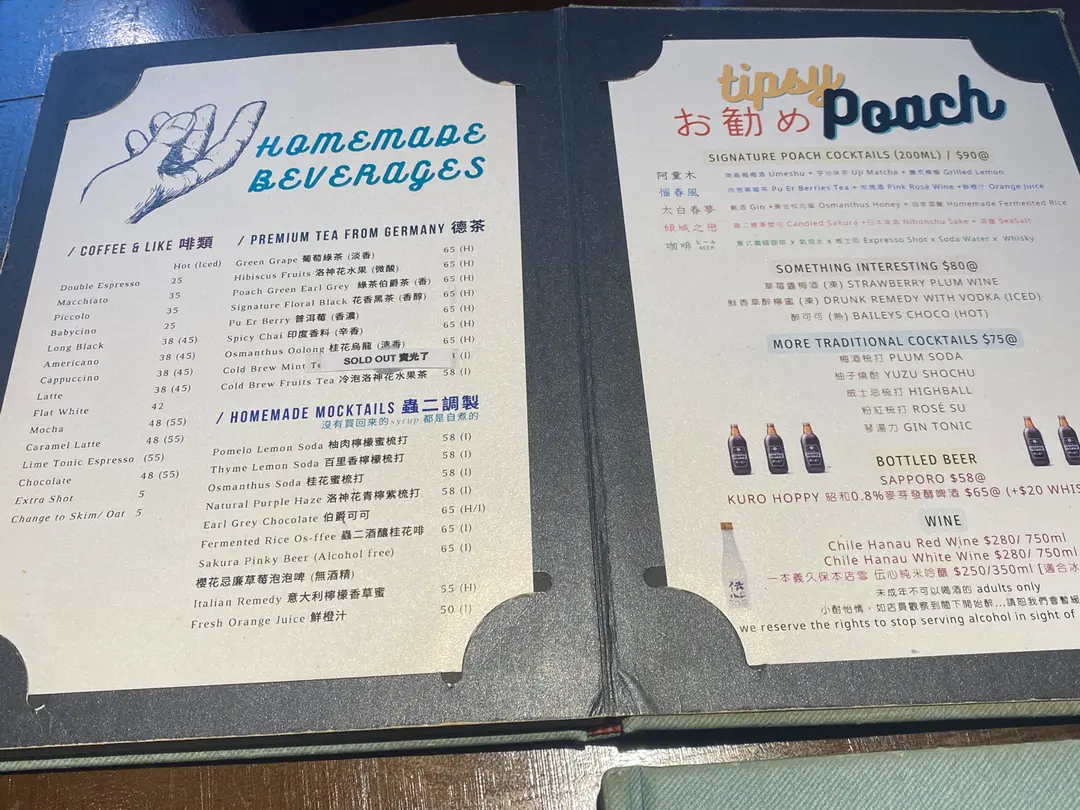 HOMEMADE
BEVERAGES
/ COFFEE & LIKE 啡類
Hot (Iced)
Double Espresso 25
Macchiato 35
Piccolo 35
Babycino 25
Long Black 38 (45)
Americano 38 (45)
Cappuccino 38 (45)
Latte 38 (45)
Flat White 42
Mocha 48 (55)
Caramel Latte 48 (55)
Lime Tonic Espresso (55)
Chocolate 48 (55)
Extra Shot 5
Change to Skim/ Oat 5
/ PREMIUM TEA FROM GERMANY 德茶
Green Grape 葡萄綠茶 (淡香) 65 (H)
Hibiscus Fruits 洛神花水果 (微酸) 65 (H)
Poach Green Earl Grey 綠茶伯爵茶 (香) 65 (H)
Signature Floral Black 花香黑茶 (香醇) 65 (H)
Pu Er Berry 普洱莓 (香濃) 65 (H)
Spicy Chai 印度香料 (辛香) 65 (H)
Osmanthus Oolong 桂花烏龍 (清香) 65 (H)
Cold Brew Mint SOLD OUT 賣光了 (I)
Cold Brew Fruits Tea 冷泡洛神花水果茶 58 (I)
/ HOMEMADE MOCKTAILS 蟲二調製
沒有買回來的syrup,都是自煮的
Pomelo Lemon Soda 柚肉檸檬蜜梳打 58 (I)
Thyme Lemon Soda 百里香檸檬梳打 58 (I)
Osmanthus Soda 桂花蜜梳打 58 (I)
Natural Purple Haze 洛神花青檸紫梳打 58 (I)
Earl Grey Chocolate 伯爵可可 65 (H/I)
Fermented Rice Os-ffee 蟲二酒釀桂花啡 65 (I)
Sakura Pinky Beer (Alcohol free) 65 (I)
櫻花忌廉草莓泡泡啤 (無酒精)
Italian Remedy 意大利檸檬香草蜜 55 (H)
Fresh Orange Juice 鮮橙汁 50 (I)
tipsy
お勧め Poach
SIGNATURE POACH COCKTAILS (200ML) / $90@
阿童木 Umeshu + 宇治抹茶 Uji Matcha + Grilled Lemon
惱春風 Pu Er Berries Tea + 玫瑰酒 Pink Rosé Wine + 鮮橙汁 Orange Juice
太白春夢 氈酒 Gin + 黃金桂花蜜 Osmanthus Honey + Homemade Fermented Rice
傾城之戀 Candied Sakura + 日本清酒 Nihonshu Sake + 海鹽 SeaSalt
咖啡 ビール BEER 意式濃縮咖啡 x 氣泡水 x 威士忌 Expresso Shot x Soda Water x Whisky
SOMETHING INTERESTING $80@
草莓醬梅酒 (凍) STRAWBERRY PLUM WINE
鮮香草醉檸蜜 (凍) DRUNK REMEDY WITH VODKA (ICED)
醉可可 (熱) BAILEYS CHOCO (HOT)
MORE TRADITIONAL COCKTAILS $75@
梅酒梳打 PLUM SODA
柚子燒酎 YUZU SHOCHU
威士忌梳打 HIGHBALL
粉紅梳打 ROSÉ SU
琴湯力 GIN TONIC
BOTTLED BEER
SAPPORO $58@
KURO HOPPY 昭和0.8%麥芽發酵啤酒 $65@ (+$20 WHIS
WINE
Chile Hanau Red Wine $280/ 750ml
Chile Hanau White Wine $280/ 750ml
一本義久保本店雪 伝心純米吟釀 $250/350ml [適合冰
未成年不可以喝酒的 adults only
小酌怡情，如店員觀察到閣下開始醉...請恕我們會暫緩
we reserve the rights to stop serving alcohol in sight of